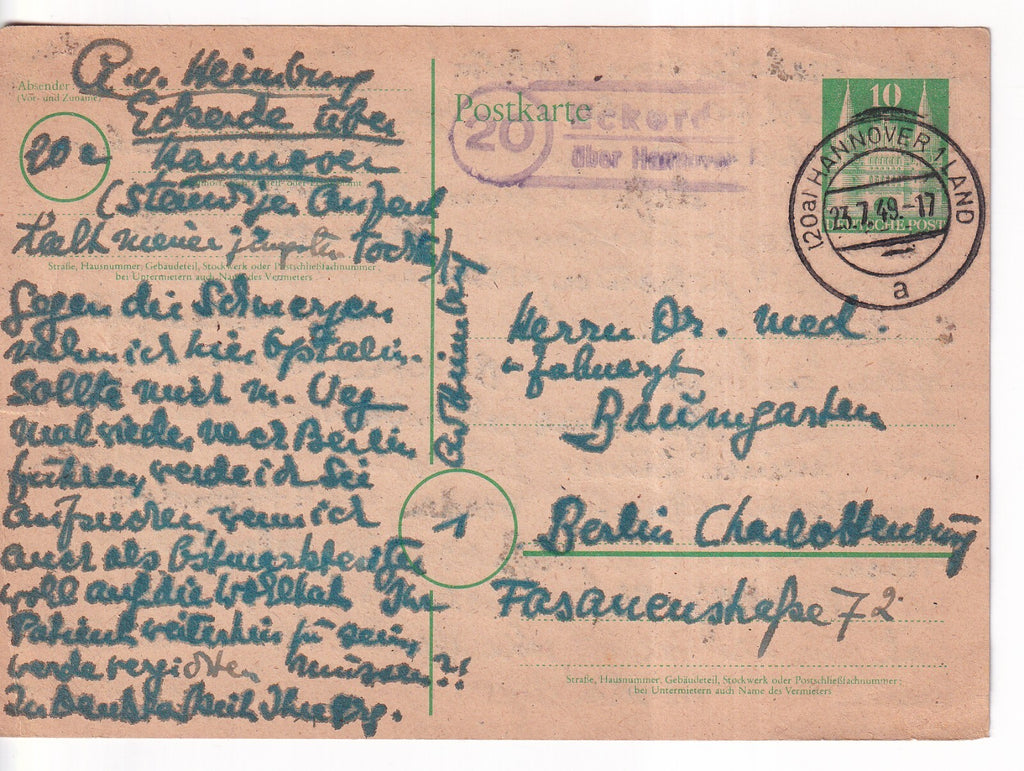 Absender:
(Vor- und Zuname)
R. v. Heimburg
Eckerde über
Hannover
20a
(Ständiger Aufent
halt meiner jüngsten Tochter)
Straße, Hausnummer, Gebäudeteil, Stockwerk oder Postschließfachnummer;
bei Untermietern auch Name des Vermieters
Gegen die Schmerzen
nahm ich hier Optalin.
Sollte mich m. Weg
mal wieder nach Berlin
führen, werde ich Sie
aufsuchen, wenn ich
auch als Ostmarkbesitzer
wohl auf die Wohltat Ihr
Patient weiterhin zu sein,
werde verzichten müssen?!
In Dankbarkeit Ihr erg.
RvHeimburg
Postkarte
20
Eckerde
über Hannover
10
DEUTSCHE POST
(20a) HANNOVER 1 LAND
23.7.49.-17
a
Herrn Dr. med.
Zahnarzt
Baumgarten
1
Berlin Charlottenburg
Fasanenstraße 72
Straße, Hausnummer, Gebäudeteil, Stockwerk oder Postschließfachnummer;
(bei Untermietern auch Name des Vermieters